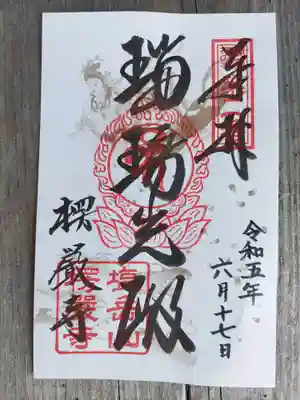 奉拝
令和五年
六月十七日
瑠璃光殿
楞厳寺
楞嚴寺